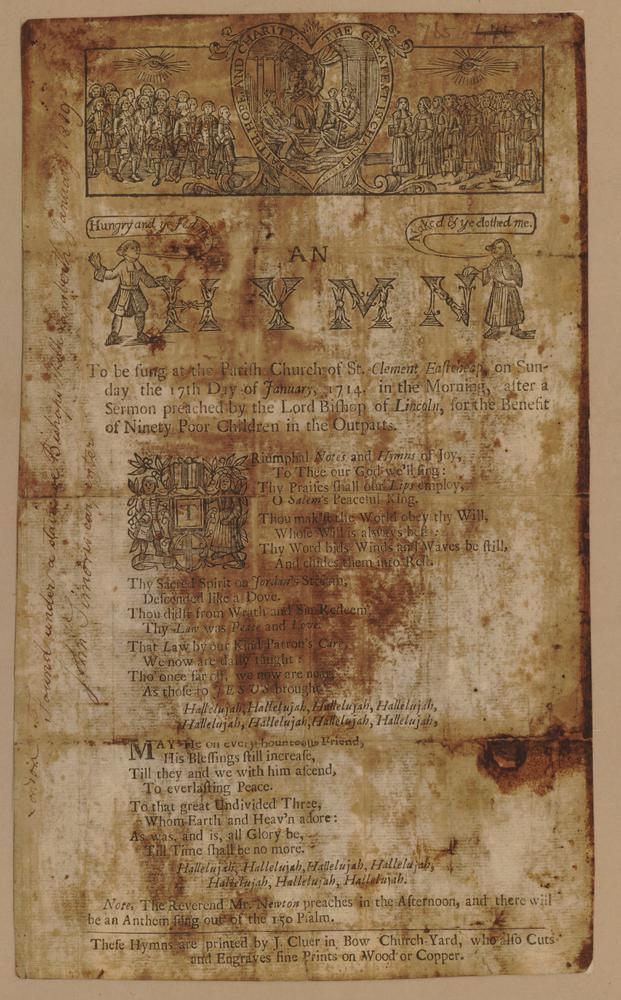 FAITH, HOPE AND CHARITY: THE GREATEST IS CHARITY
Hungry and ye fed me
Naked & ye clothed me.
AN
HYMN
To be ſung at the Pariſh Church of St. Clement Eaſtcheap, on Sun-
day the 17th Day of January, 1714. in the Morning, after a
Sermon preached by the Lord Biſhop of Lincoln, for the Benefit
of Ninety Poor Children in the Outparts.
TRiumphal Notes and Hymns of Joy,
To Thee our God we'll ſing:
Thy Praiſes ſhall our Lips employ,
O Salem's Peaceful King.
Thou mak'ſt the World obey thy Will,
Whoſe Will is always beſt:
Thy Word bids Winds and Waves be ſtill,
And chides them into Reſt.
Thy Sacred Spirit on Jordan's Stream,
Deſcended like a Dove.
Thou didſt from Wrath and Sin Redeem,
Thy Law was Peace and Love.
That Law by our Kind Patron's Care,
We now are daily taught:
Tho' once far off, we now are near,
As thoſe to JESUS brought.
Hallelujah, Hallelujah, Hallelujah, Hallelujah,
Hallelujah, Hallelujah, Hallelujah, Hallelujah,
MAY He on every bounteous Friend,
His Bleſſings ſtill increaſe,
Till they and we with him aſcend,
To everlaſting Peace.
To that great Undivided Three,
Whom Earth and Heav'n adore:
As was, and is, all Glory be,
Till Time ſhall be no more.
Hallelujah, Hallelujah, Hallelujah, Hallelujah,
Hallelujah, Hallelujah, Hallelujah.
Note, The Reverend Mr. Newton preaches in the Afternoon, and there will
be an Anthem ſung out of the 150 Pſalm.
Theſe Hymns are printed by J. Cluer in Bow Church-Yard, who alſo Cuts
and Engraves fine Prints on Wood or Copper.
Found under a staircase Bishops Lambeth January 1819
John Simonson
London
765